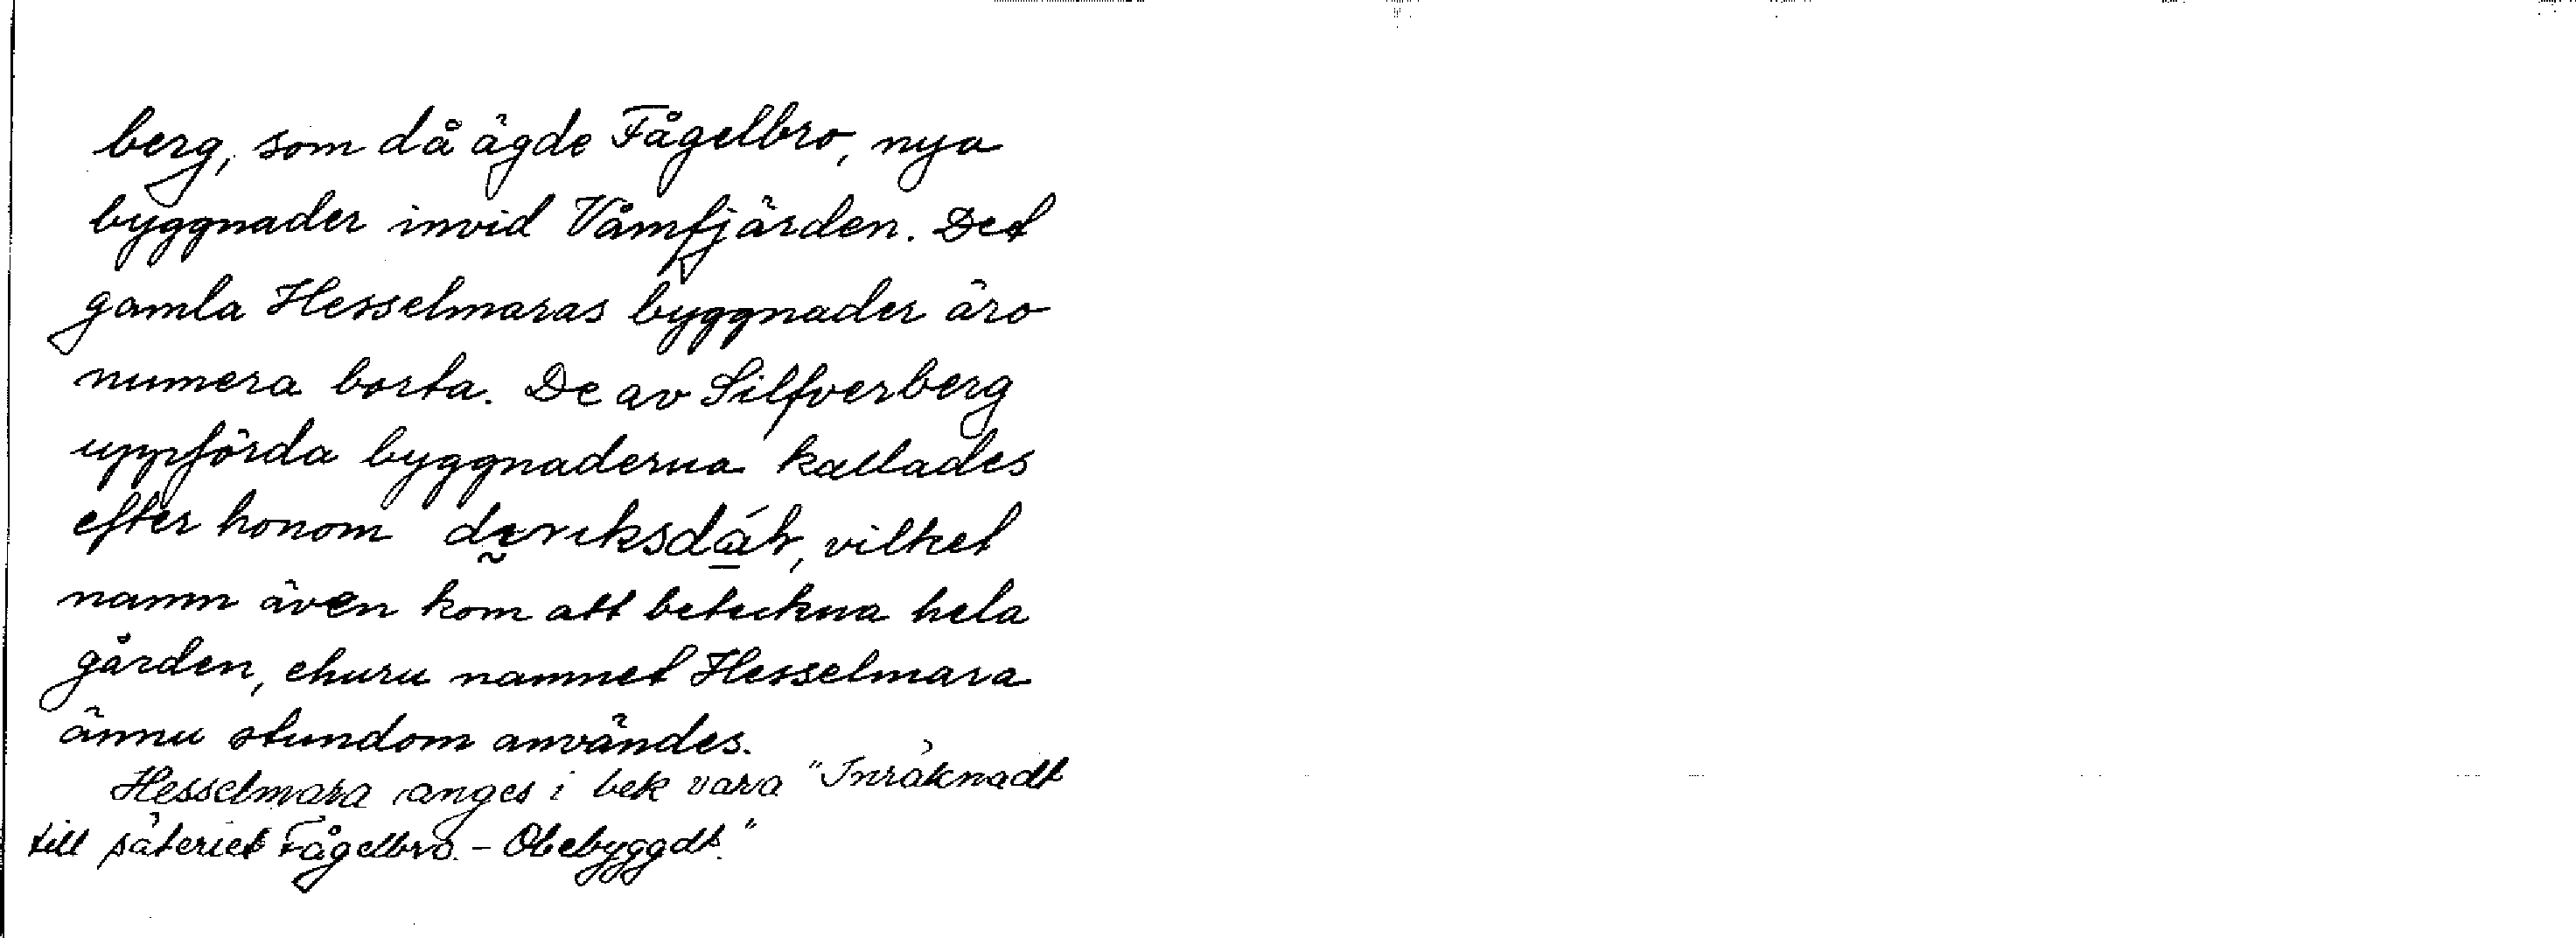 berg, som då ägde Fågelbro, nya
byggnader invid Våmfjärden. Det
gamla Hesselmaras byggnader äro
numera borta. De av Silfverberg
uppförda byggnaderna kallades
efter honom vilket
namn även kom att beteckna hela
gården, ehuru namnet Hesselmara
ännu stundom användes.
Hesselmara anges i bek vara "Inräknadt
till säteriet Fågelbro. - Obebyggdt."